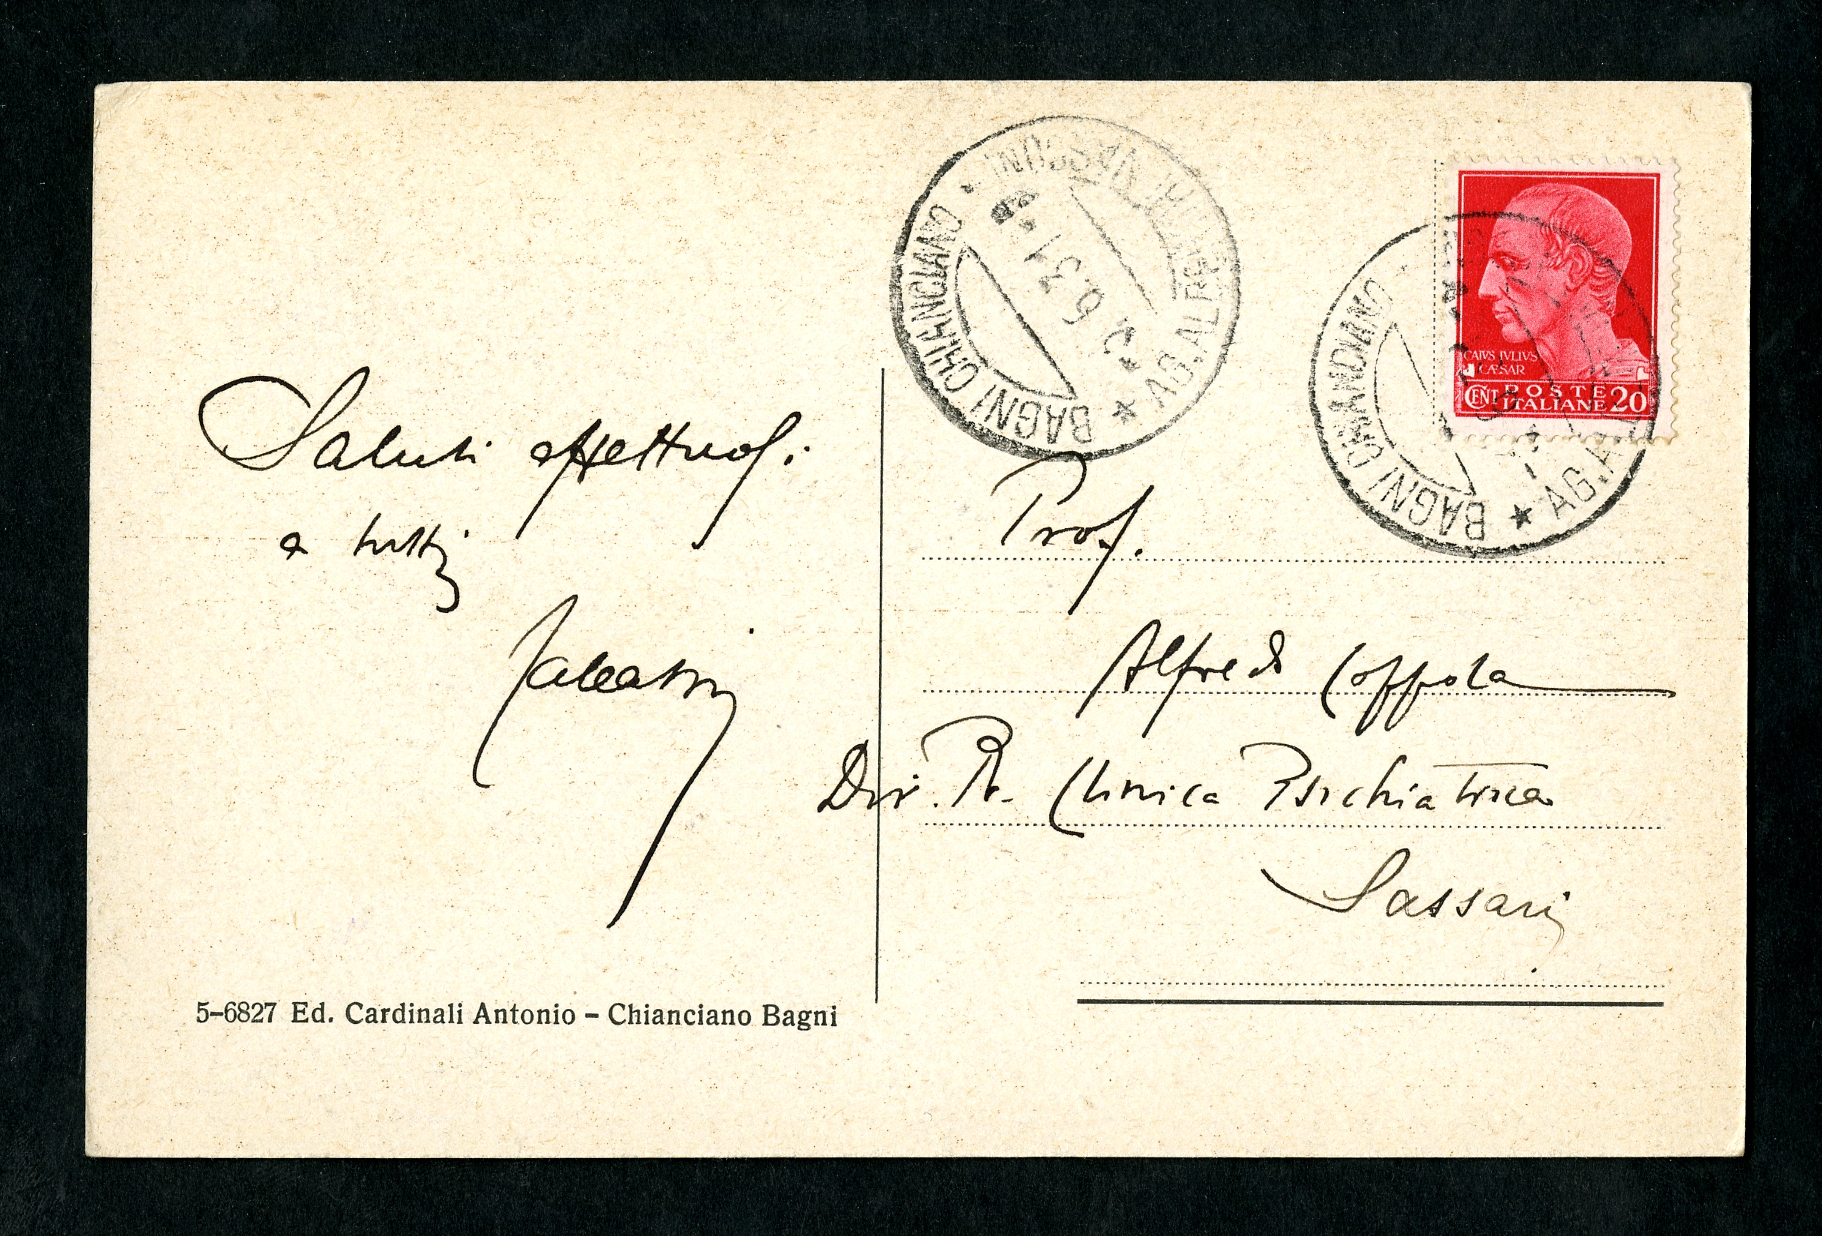 Saluti affettuosi
a tutti
5-6827 Ed. Cardinali Antonio - Chianciano Bagni
BAGNI CHIANCIANO
★ AG. AL
6.31
BAGNI CHIANCIANO
★ AG. A
CAIVS IVLIVS
CÆSAR
CENT POSTE ITALIANE 20
Prof.
Alfredo Coppola
Dir. R. Clinica Psichiatrica
Sassari